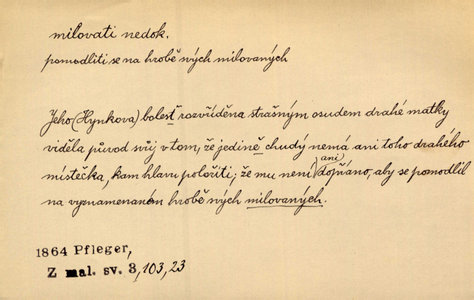 milovati nedok.
pomodliti se na hrobě svých milovaných
Jeho (Hynkova) bolest rozvířděna strašným osudem drahé matky
viděla původ svůj v tom, že jedině chudý nemá ani toho drahého
místečka, kam hlavu položiti; že mu není ani dopřáno, aby se pomodlil
na vyznamenaném hrobě svých milovaných.
1864 Pfleger,
Z mal. sv. 3, 103, 23